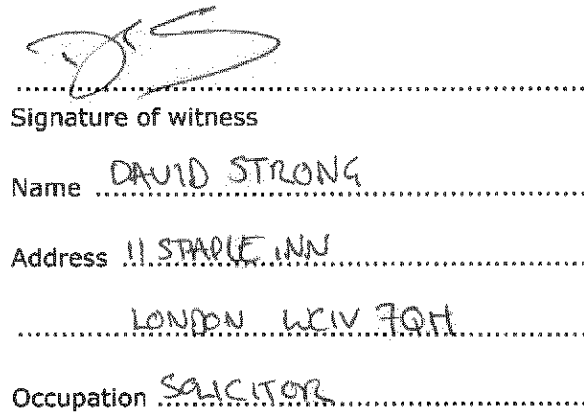 Signature of witness
Name DAVID STRONG
Address 11 STAPLE INN
LONDON WC1V 7QH
Occupation SOLICITOR